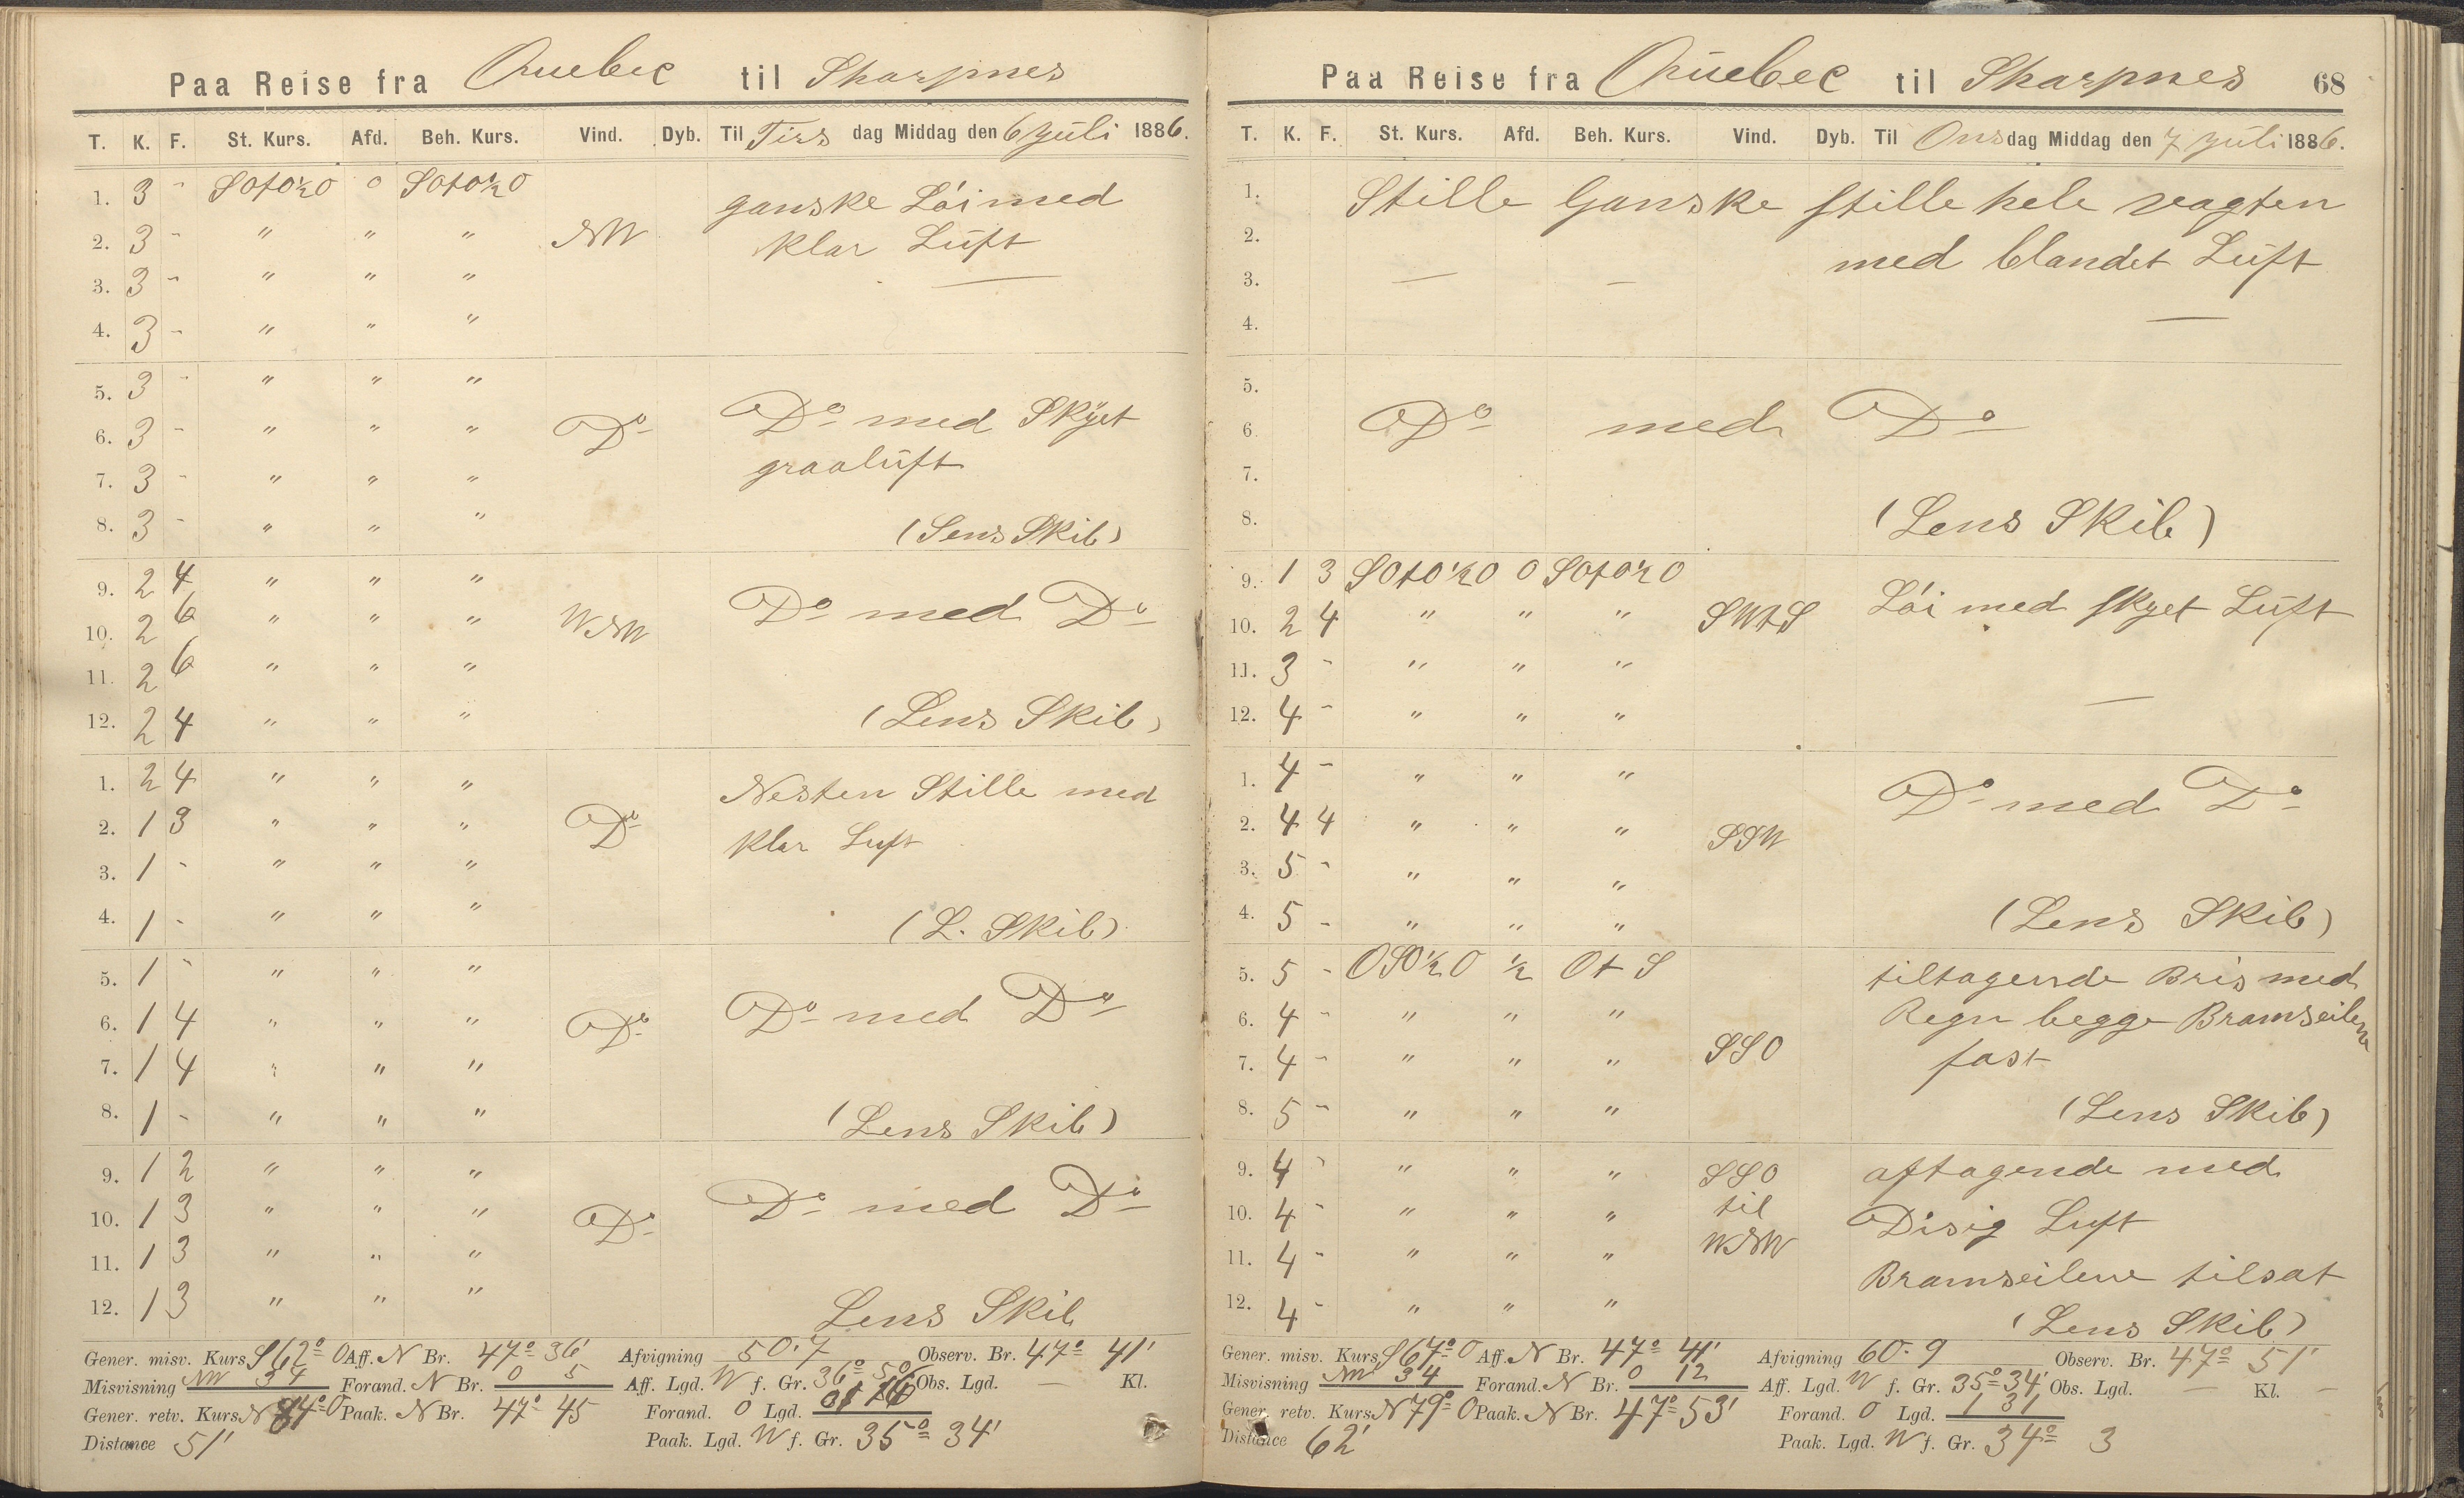 Paa Reise fra Quebec til Sharpnes
T. K. F. St. Kurs. Afd. Beh. Kurs. Vind. Dyb. Til Tirs dag Middag den 6 Juli 1886.
1. 3 - SOtO½O 0 SOtO½O ganske Löi med
2. 3 - " " " NW klar Luft
3. 3 - " " " —
4. 3 - " " "
5. 3 - " " "
6. 3 - " " " Do Do med Skyet
7. 3 - " " " graaluft
8. 3 - " " " (Lens Skib)
9. 2 4 " " "
10. 2 6 " " " WNW Do med Do
11. 2 6 " " "
12. 2 4 " " " (Lens Skib)
1. 2 4 " " " Nesten Stille med
2. 1 3 " " " Do klar Luft
3. 1 - " " "
4. 1 - " " " (L. Skib)
5. 1 - " " "
6. 1 4 " " " Do Do med Do
7. 1 4 " " "
8. 1 - " " " (Lens Skib)
9. 1 2 " " "
10. 1 3 " " " Do Do med Do
11. 1 3 " " "
12. 1 3 " " " Lens Skib
Gener. misv. Kurs S 62° O Aff. N Br. 47° 36' Afvigning 50.7 Observ. Br. 47° 41'
Misvisning NW 34 Forand. N Br. 0 5 Aff. Lgd. W f. Gr. 36° 50' Obs. Lgd. — Kl.
Gener. retv. Kurs N 84° O Paak. N Br. 47° 45 Forand. O Lgd. 1 16
Distance 51' Paak. Lgd. W f. Gr. 35° 34'
Paa Reise fra Quebec til Sharpnes 68
T. K. F. St. Kurs. Afd. Beh. Kurs. Vind. Dyb. Til Onsdag Middag den 7 Juli 1886.
1. Stille Ganske stille hele vagten
2. med blandet Luft
3. — —
4. —
5.
6. Do med Do
7.
8. (Lens Skib)
9. 1 3 SOtO½O 0 SOtO½O
10. 2 4 " " " SWtS Löi med skyet Luft
11. 3 - " " "
12. 4 - " " " —
1. 4 - " " " Do med Do
2. 4 4 " " " SSW
3. 5 - " " "
4. 5 - " " " (Lens Skib)
5. 5 - OSO½O ½ OtS tiltagende Bris med
6. 4 - " " " Regn begge Bramseilene
7. 4 - " " " SSO fast
8. 5 - " " " (Lens Skib)
9. 4 - " " " SSO aftagende med
10. 4 - " " " til Disig Luft
11. 4 - " " " WNW Bramseilene tilsat
12. 4 - " " " (Lens Skib)
Gener. misv. Kurs S 67° O Aff. N Br. 47° 41' Afvigning 60.9 Observ. Br. 47° 51'
Misvisning NW 34 Forand. N Br. 0 12 Aff. Lgd. W f. Gr. 35° 34' Obs. Lgd. — Kl. —
Gener. retv. Kurs N 79° O Paak. N Br. 47° 53' Forand. O Lgd. 1 31
Distance 62' Paak. Lgd. W f. Gr. 34° 3